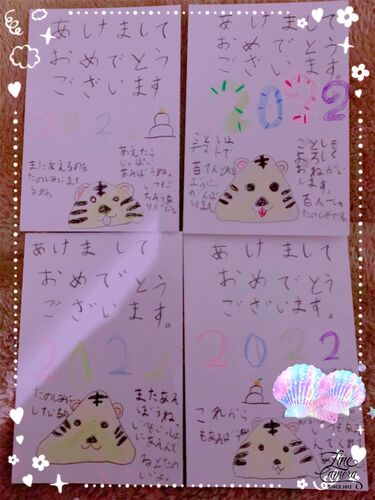 あけまして
おめでとう
ございます
2022
あえたら
いっぱい
あそぼうね。
またあえるのを
たのしみにまて
るね。
あけまして
おめでとう
ございます。
2022
ことしは
テストで
百てんとれる
ように
がんば
ります
ことしも
よろしく
おねがい
します。
あけまして
おめでとう
ございます。
2022
たのしみに
しているね
またあそ
ぼうね
あけまして
おめでとう
ございます。
2022
これから
もあそぼ
Fine
Camera